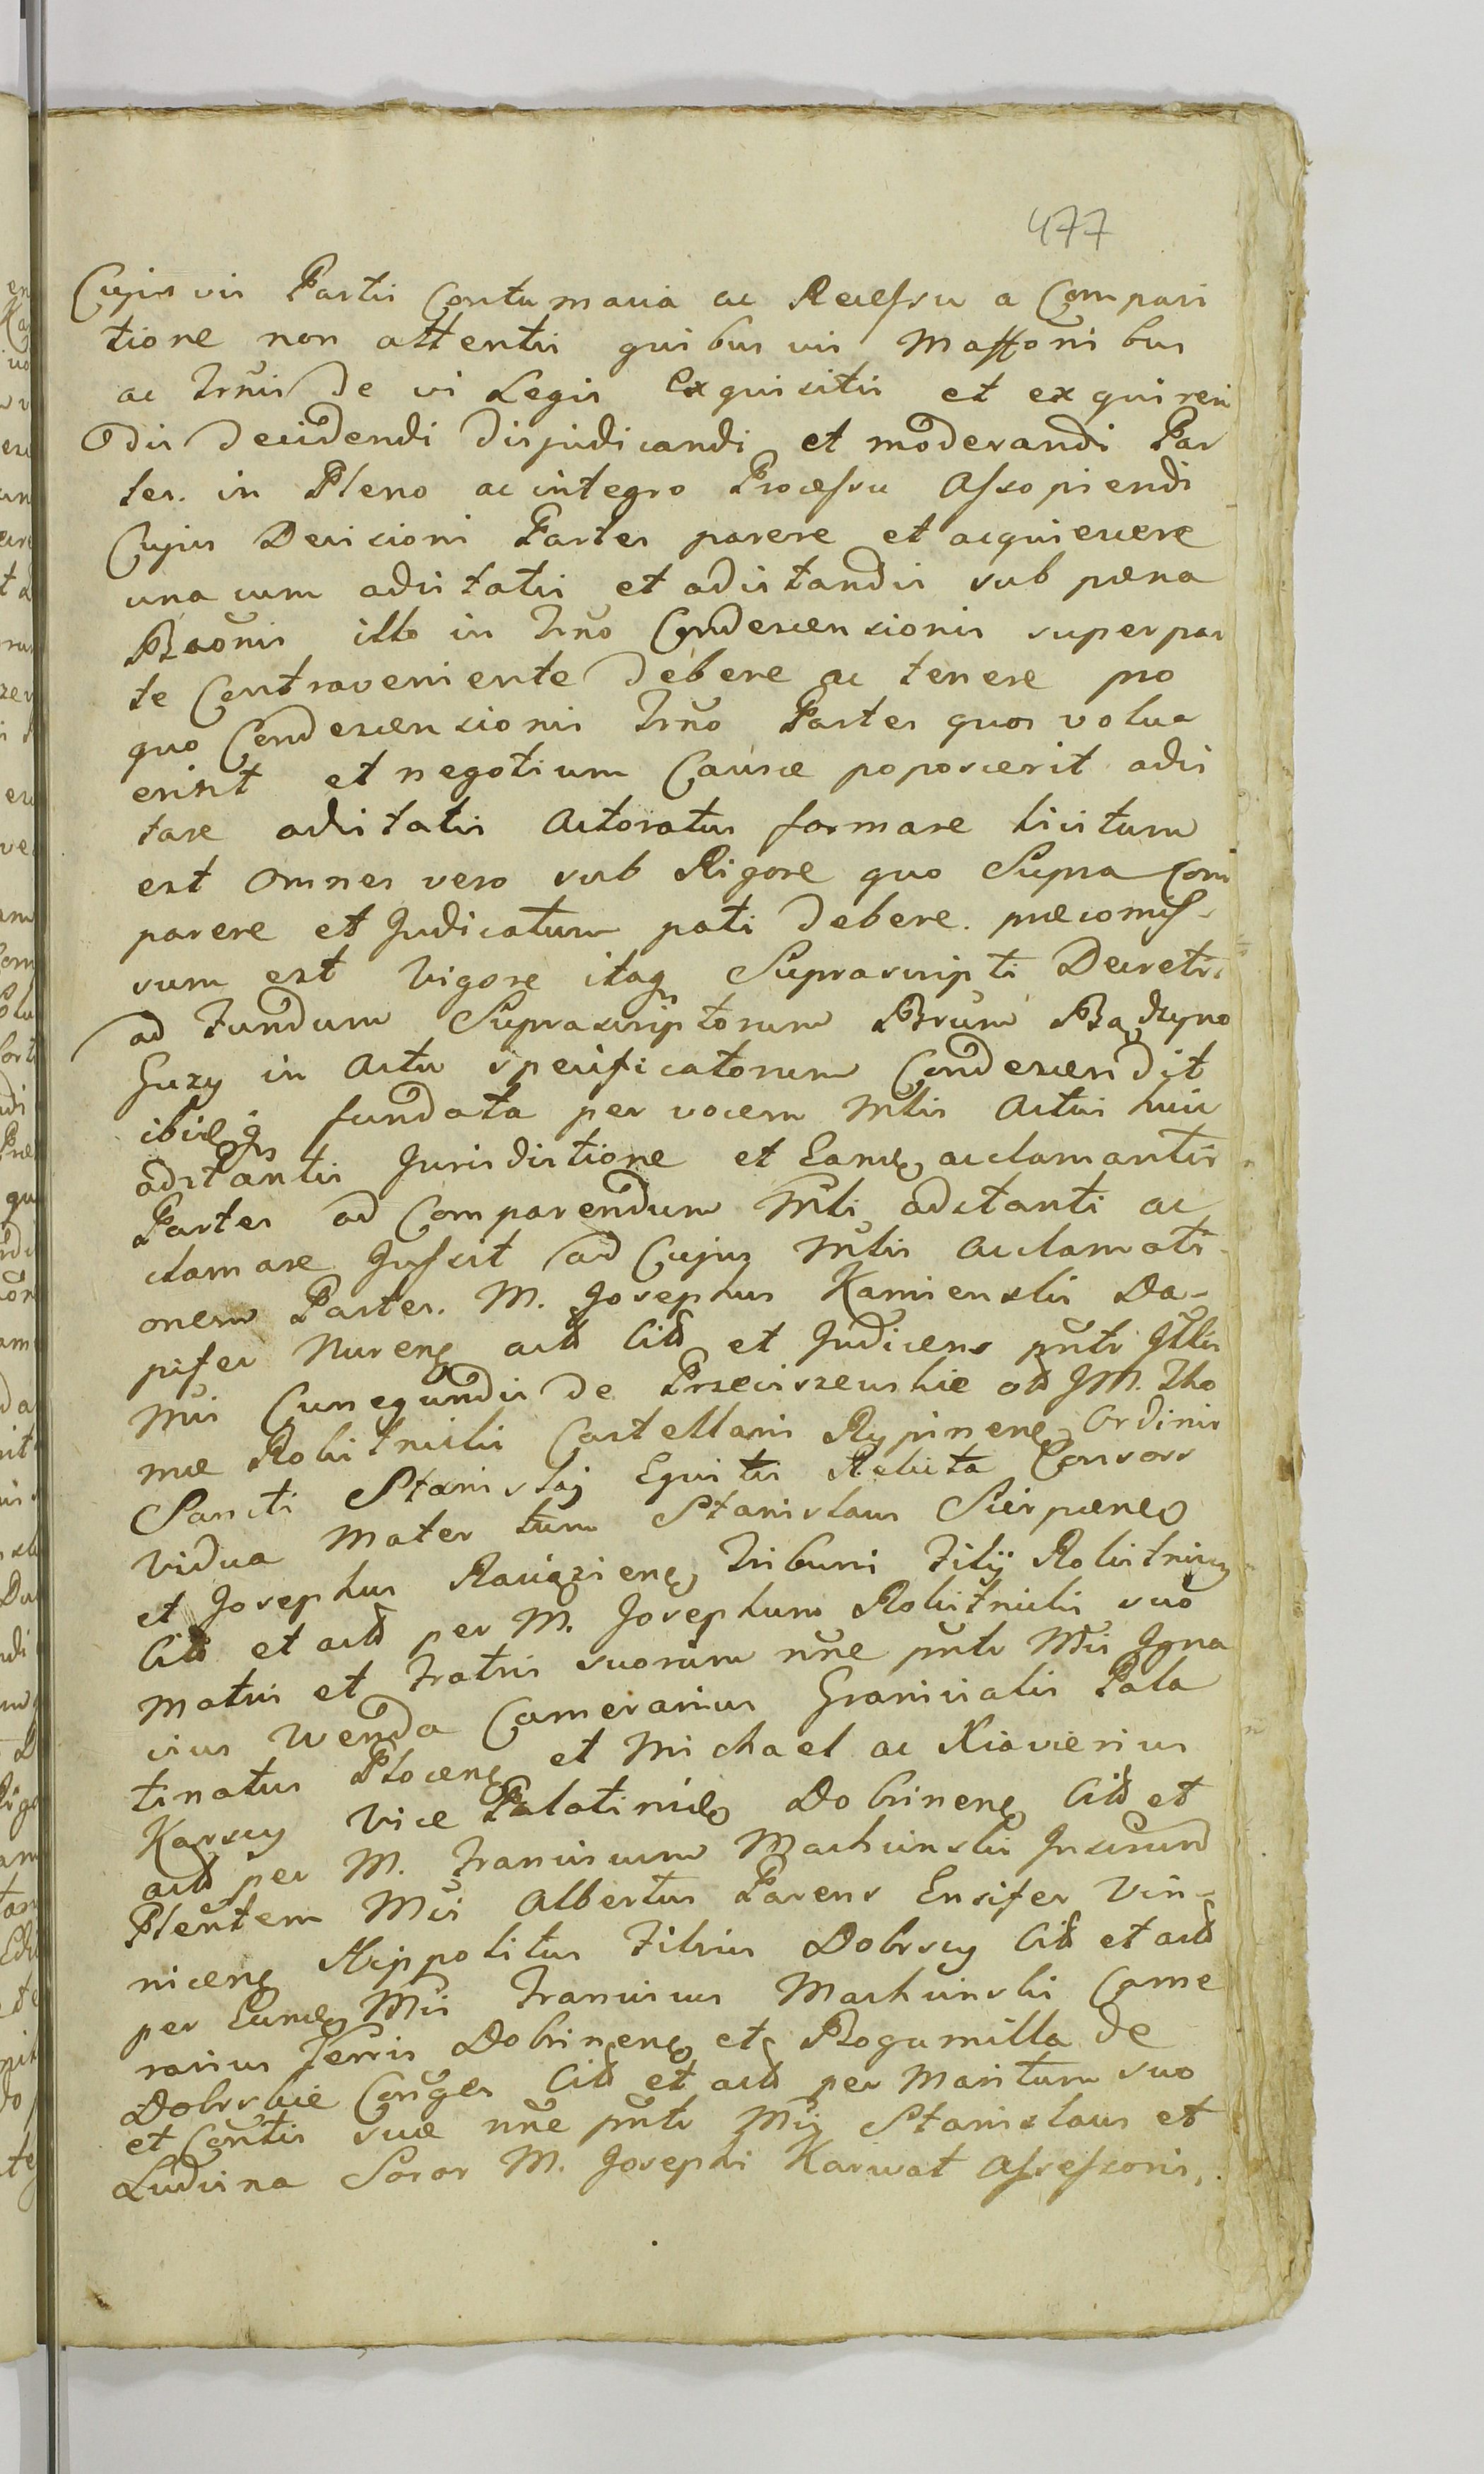 477
Cujus vis Partis Contumacia ac Recessu a Compari
tione non attentis quibus vis Mottõnibus
ac Trñis de vi Legis Exquisitis et exquiren
dis decidendi disjudicandi et moderandi Par
tes. in Pleno ac integro Processu Assopiendi
Cujus Decisioni Partes parere et acquiescere
una cum adcitatis et adcitandis sub pœna
Bãonis illo in Trño Condescensionis super par
te Contraveniente debere ac tenere pro
quo Condescensionis Trño Partes quos volue
erint et negotium Causæ poposcerit adci
tare adcitatis Actoratus formare licitum
est omnes vero sub Rigore quo Supra Com
parere et Judicatum pati debere. præcomis-
sum est Vigore itaq Suprascripti Decreti
ad Fundum Suprascriptorum Brum Bądzyno
Guzy in Actu specificatorum Condescendit
ibidq fundata per vocem Mlis Actui huic
adstantis Jurisdictione et Eamq acclamantis
Partes ad Comparendum Mli adstanti ac
clamare Jussit ad Cujus Mlis acclamati
onem Partes. M. Josephus Kamienski Da-
pifer Nureng actd Citd et Judicens pnti
Mcis Cunegundis de Przeciszewskie od JM. Tho
mæ Rokitnicki Castellani Rypineng Ordinis
Sancti Stanislaj Equitis Relicta Consors
Vidua Mater tum Stanislaus Sierpceneg
et Josephus Raciążieneg Tribuni Filij Rokitniccy
Citd et actd per M. Josephum Rokitnicki suo
Matris et Fratris suorum nñe pnte Mcis Igna
cius Wenda Camerarius Granicialis Pala
tinatus Ploceng et Michael ac Xiavierius
Karscy Vice Palatinidæ Dobrineng Citd et
actd per M. Franciscum Marchinski Juratum
Plentem Mcis Albertus Parens Ensifer Vin-
niceng Hippolitus Filius Dobrscy Citd et actd
per Eundq Mcis Franciscus Marchinski Came
rarius Terris Dobrineng et Bogumilla de
Dobrskie Conges Citd et actd per Maritum suo
et Contis suæ nñe pnte Mcij Stanislaus et
Ludvina Soror M. Josephi Karwat Assessoris,